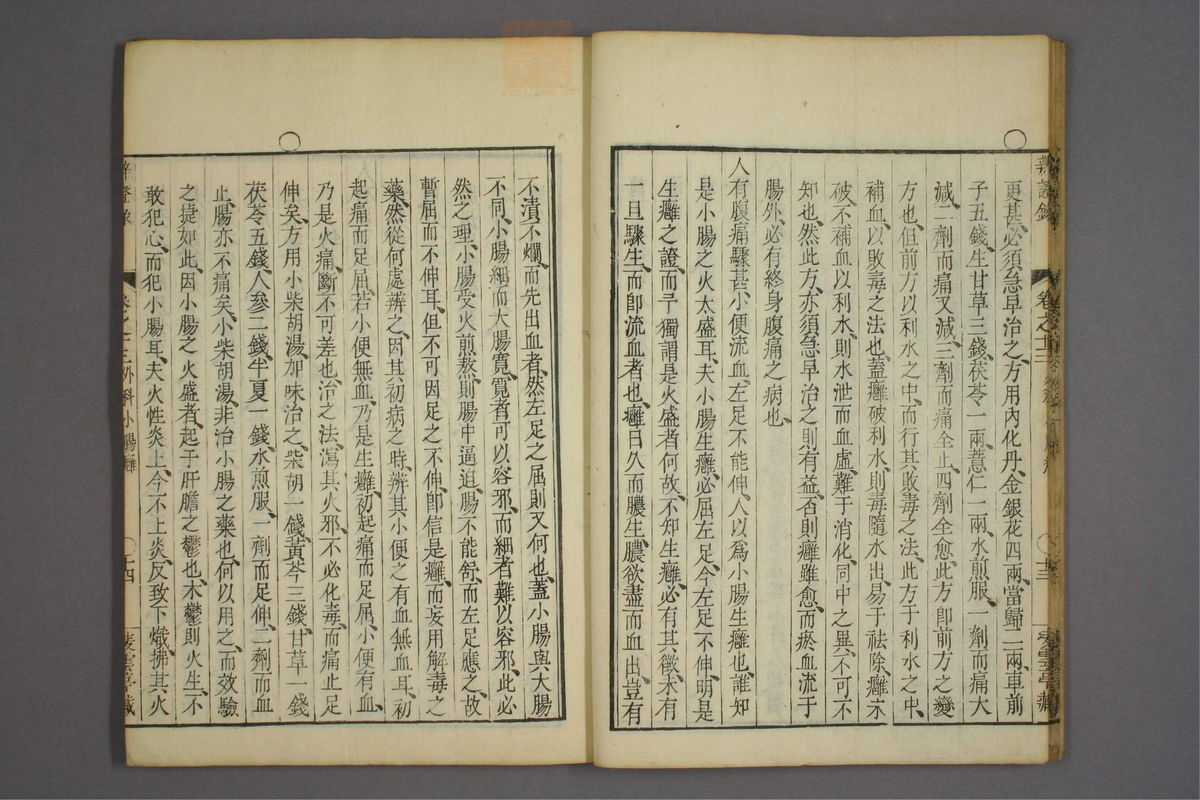 辨證錄 卷之十三
更甚必須急早治之方用內化丹金銀花四兩當歸二兩車前
子五錢生甘草三錢茯苓一兩薏仁一兩水煎服一劑而痛大
減二劑而痛又減三劑而痛全止四劑全愈此方即前方之變
方也但前方以利水之中而行其敗毒之法此方于利水之中
補血以敗毒之法也蓋癰破利水則毒隨水出易于祛除癰未
破不補血以利水則水泄而血虛難于消化同中之異不可不
知也然此方亦須急早治之則有益否則癰雖愈而瘀血流于
腸外必有終身腹痛之病也
人有腹痛驟甚小便流血左足不能伸人以爲小腸生癰也誰知
是小腸之火太盛耳夫小腸生癰必屈左足今左足不伸明是
生癰之證而予獨謂是火盛者何故不知生癰必有其徵未有
一旦驟生而即流血者也癰日久而膿生膿欲盡而血出豈有
不潰不爛而先出血者然左足之屈則又何也蓋小腸與大腸
不同小腸細而大腸寬寬者可以容邪而細者難以容邪此必
然之理小腸受火煎熬則腸中逼迫腸不能舒而左足應之故
暫屈而不伸耳但不可因足之不伸即信是癰而妄用解毒之
藥然從何處辨之因其初病之時辨其小便之有血無血耳初
起痛而足屈若小便無血乃是生癰初起痛而足屈小便有血
乃是火痛斷不可差也治之法瀉其火邪不必化毒而痛止足
伸矣方用小柴胡湯加味治之柴胡一錢黃芩三錢甘草一錢
茯苓五錢人參二錢半夏一錢水煎服一劑而足伸二劑而血
止腸亦不痛矣小柴胡湯非治小腸之藥也何以用之而效驗
之捷如此因小腸之火盛者起于肝膽之鬱也木鬱則火生不
敢犯心而犯小腸耳夫火性炎上今不上炎反致下熾拂其火
卷之十三 外科小腸癰 十四